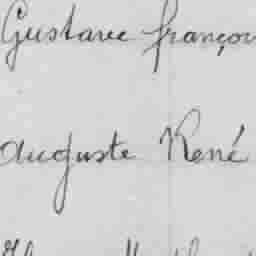 Gustave françois
auguste René